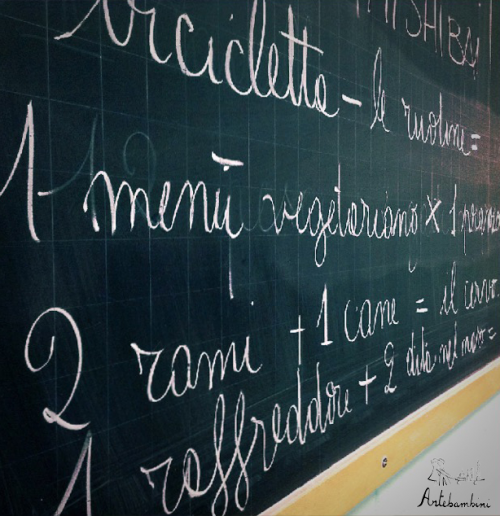 KAMISHIBAI
bicicletta - le ruotine =
1 menù vegetariano x 1 pranzo
2 rami + 1 cane = il cervo
1 raffreddore + 2 dita nel naso =
Artebambini